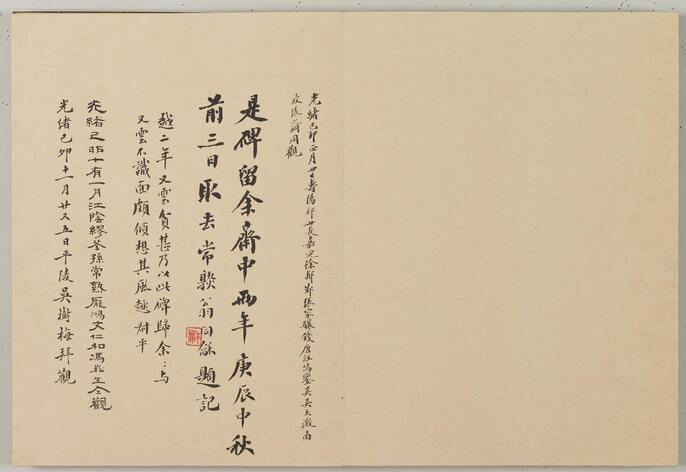 光緒己卯正月四日壽陽祁世長嘉定徐郙鄞張家驤錢唐汪鳴鑾吳吳大澂南
皮張之洞同觀
是碑留余齋中兩年庚辰中秋
前三日取去常熟翁同龢題記
越二年又雲貧甚乃以此碑歸余余与
又雲不識面頗傾想其風趣 叔平
光緒己卯十有一月江陰繆荃孫常熟龐鴻文仁和馮崧生仝觀
光緒己卯十一月廿又五日平陵吳樹梅拜觀